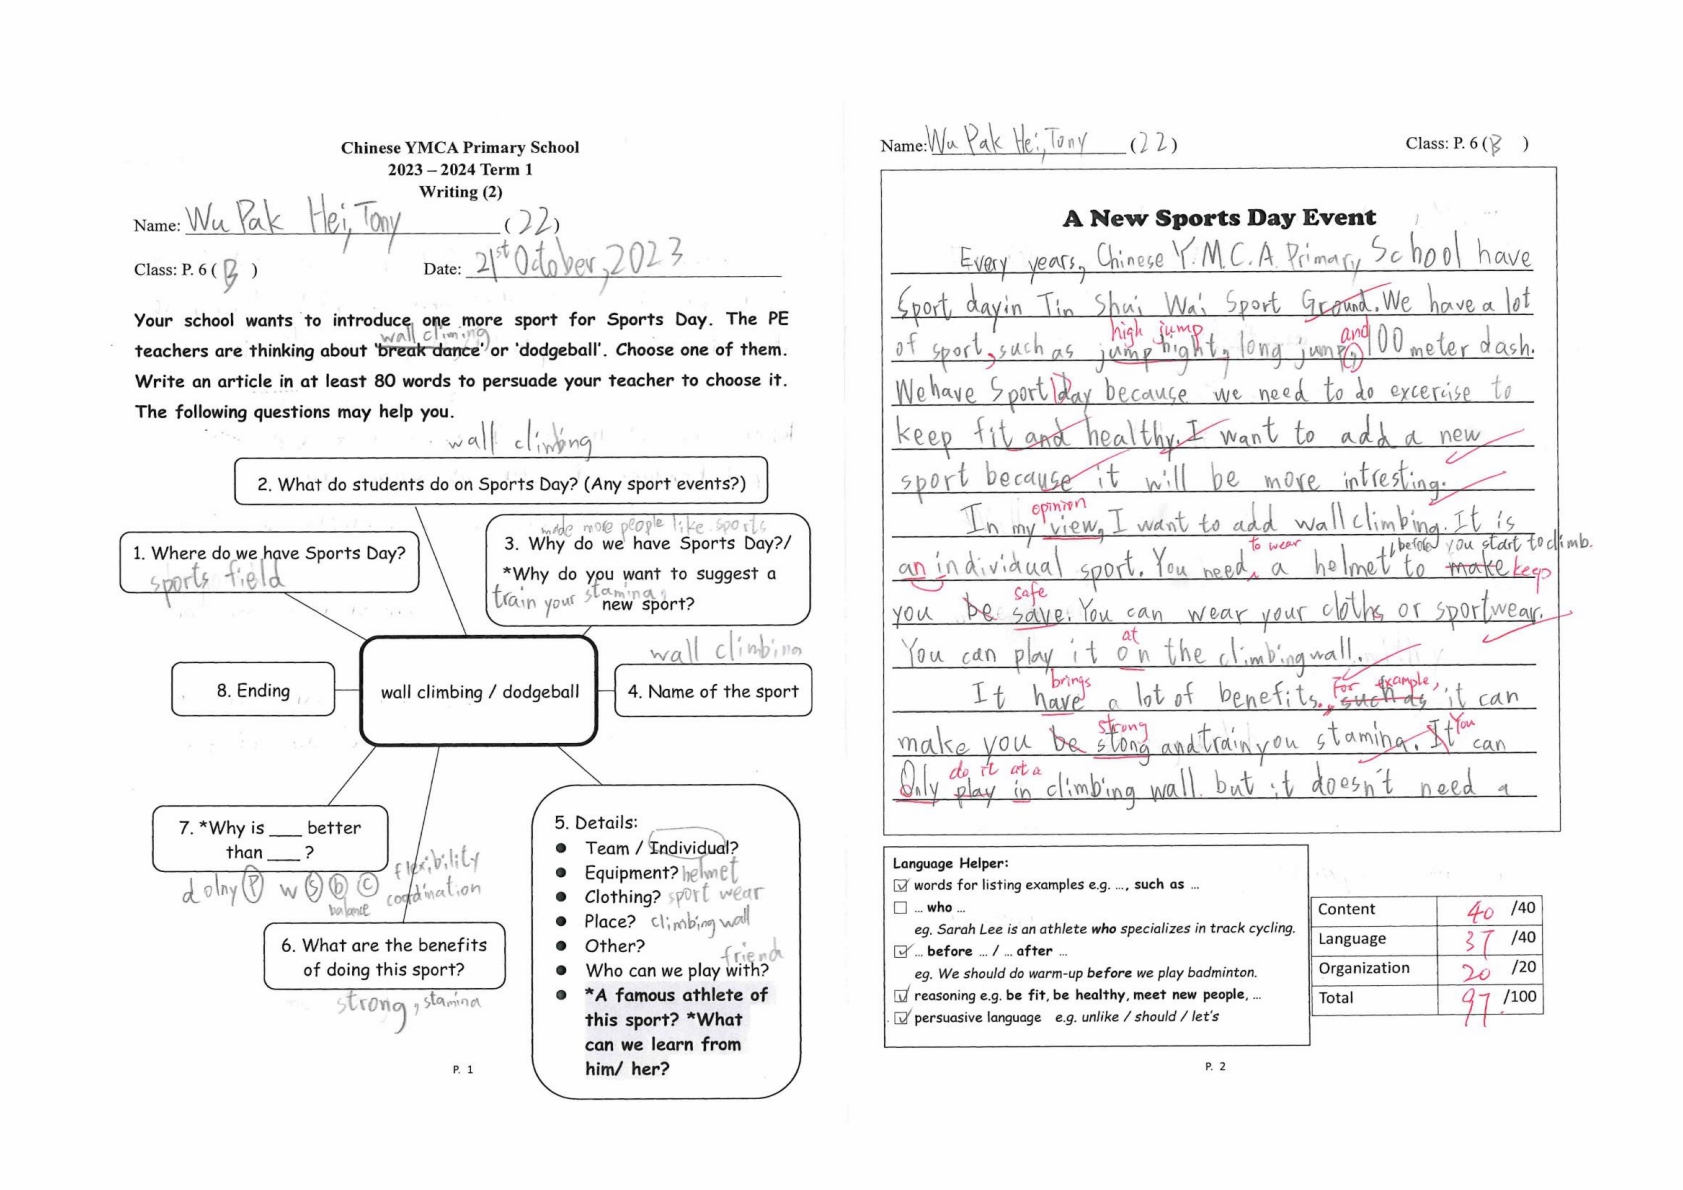 Chinese YMCA Primary School
2023 – 2024 Term 1
Writing (2)
Name: Wu Pak Hei, Tony (22)
Class: P. 6 ( B ) Date: 21st October, 2023
Your school wants to introduce one more sport for Sports Day. The PE
wall climing
teachers are thinking about 'break dance' or 'dodgeball'. Choose one of them.
Write an article in at least 80 words to persuade your teacher to choose it.
The following questions may help you.
wall climbing
2. What do students do on Sports Day? (Any sport events?)
1. Where do we have Sports Day?
sports field
made more people like sports
3. Why do we have Sports Day?/
*Why do you want to suggest a
train your stamina,
new sport?
wall climbing
8. Ending
wall climbing / dodgeball
4. Name of the sport
7. *Why is ___ better
than ___ ?
dolny P w S b C
balance
flexibility
coordination
6. What are the benefits
of doing this sport?
strong, stamina
5. Details:
Team / Individual?
Equipment? helmet
Clothing? sport wear
Place? climbing wall
Other?
friend
Who can we play with?
*A famous athlete of
this sport? *What
can we learn from
him/ her?
P. 1
Name: Wu Pak Hei, Tony (22) Class: P. 6 ( B )
A New Sports Day Event
Every years, Chinese Y.M.C.A. Primary School have
Sport day in Tin Shui Wai Sport Ground. We have a lot
high jump and
of sport, such as jump hight, long jump, 100 meter dash.
We have Sport day because we need to do excercise to
keep fit and healthy. I want to add a new
sport because it will be more intresting.
opinion
In my view, I want to add wall climbing. It is
to wear before you start to climb.
an individual sport. You need a helmet to make keep
safe
you be save. You can wear your cloths or sportwear.
at
You can play it on the climbing wall.
brings For example,
It have a lot of benefits, such as it can
strong You
make you be stong and train you stamina. It can
do it at a
Only play in climbing wall. but it doesn't need a
Language Helper:
words for listing examples e.g. ..., such as ...
... who ...
eg. Sarah Lee is an athlete who specializes in track cycling.
... before ... / ... after ...
eg. We should do warm-up before we play badminton.
reasoning e.g. be fit, be healthy, meet new people, ...
persuasive language e.g. unlike / should / let's
Content 40 /40
Language 37 /40
Organization 20 /20
Total 97 /100
P. 2